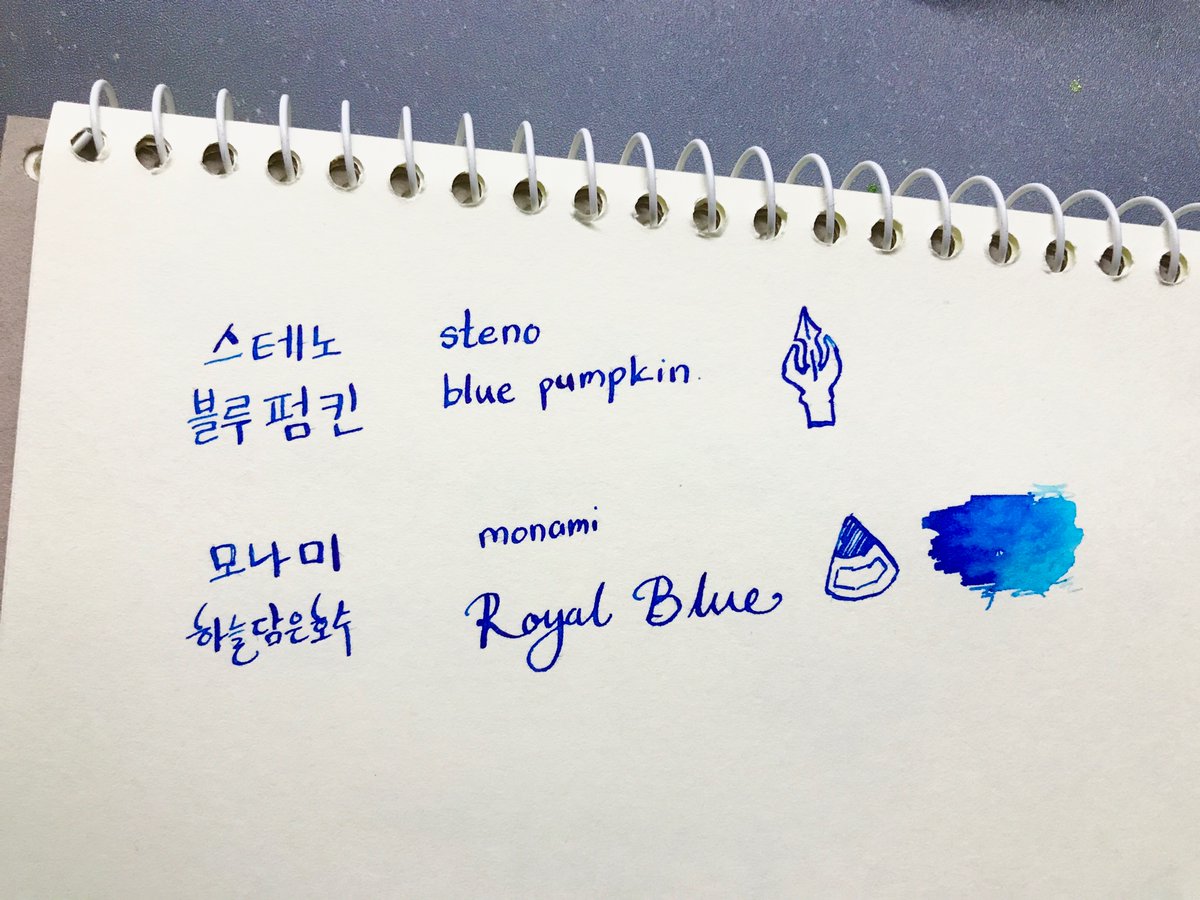 스테노
블루펌킨
steno
blue pumpkin.
모나미
하늘담은호수
monami
Royal Blue